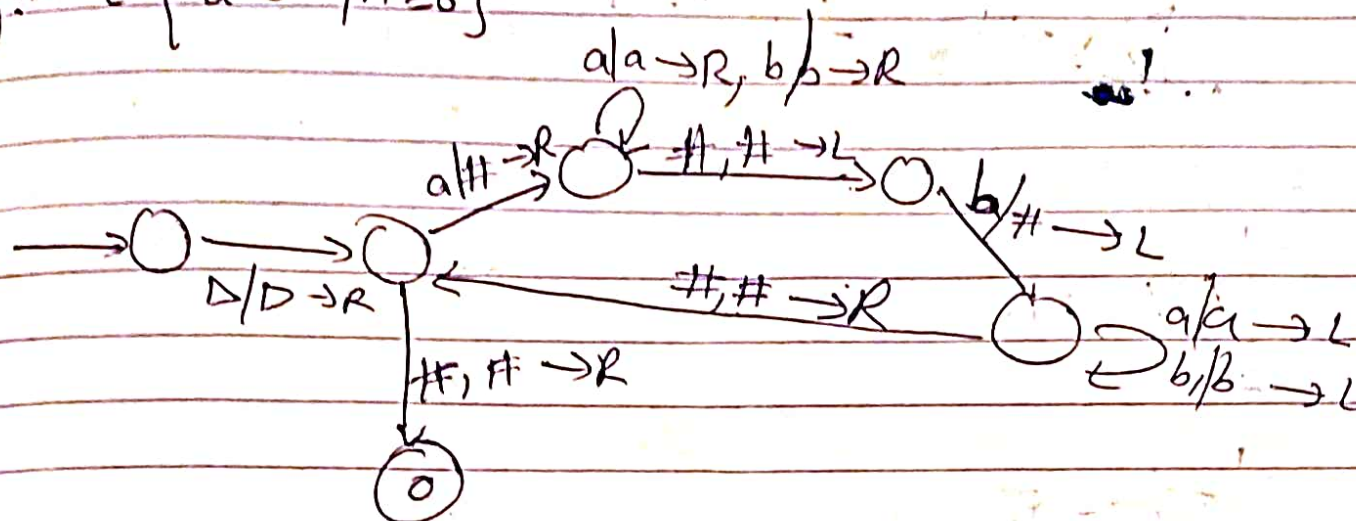 a|a →R, b/b →R
a|# →R
#, # →L
b/# → L
Δ/D →R
#, # →R
a/a → L
b/b → L
#, # →R